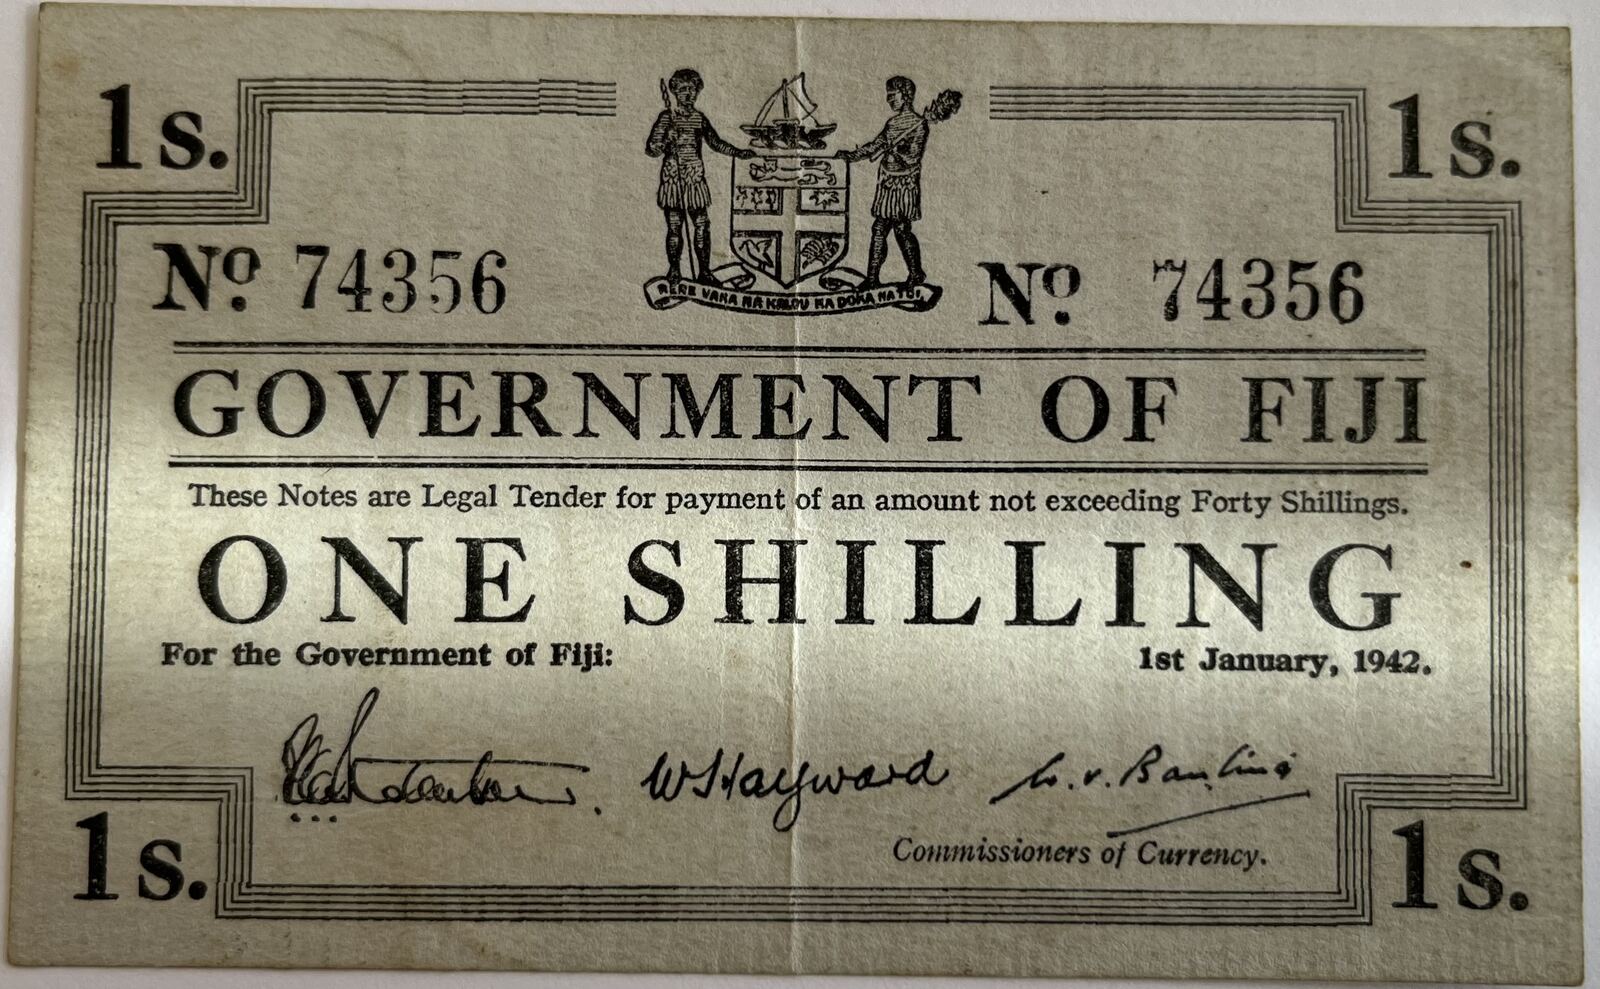 1s. 1s.
Nº 74356 Nº 74356
RERE VAKA NA KALOU KA DOKA NA TUI.
GOVERNMENT OF FIJI
These Notes are Legal Tender for payment of an amount not exceeding Forty Shillings.
ONE SHILLING
For the Government of Fiji: 1st January, 1942.
WJHayward
Commissioners of Currency.
1s. 1s.